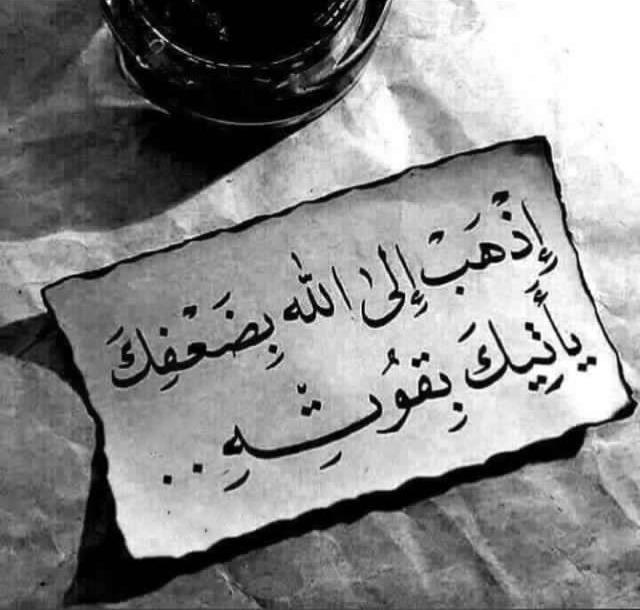 إِذْهَبْ إِلىٰ الله بِضَعْفِكَ
يَأتِيكَ بِقوُتِهِ ..